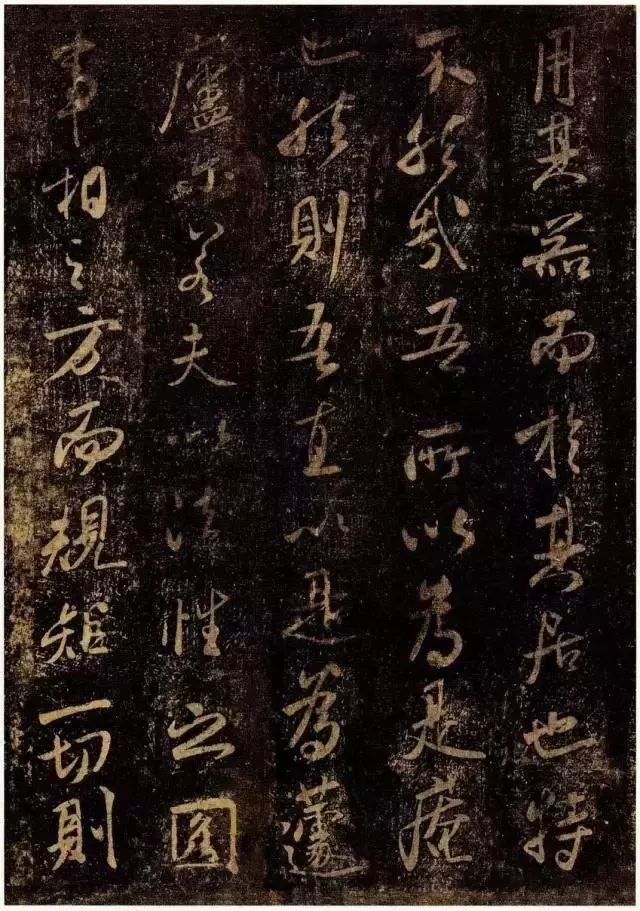 用其器而於其居也特
不然哉吾所以為是庵
也然則吾直以是為蘧
廬尔若夫以法性之圆
事相之方而規矩一切則